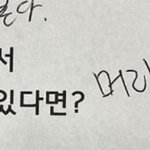 른다.
서
있다면? 머리